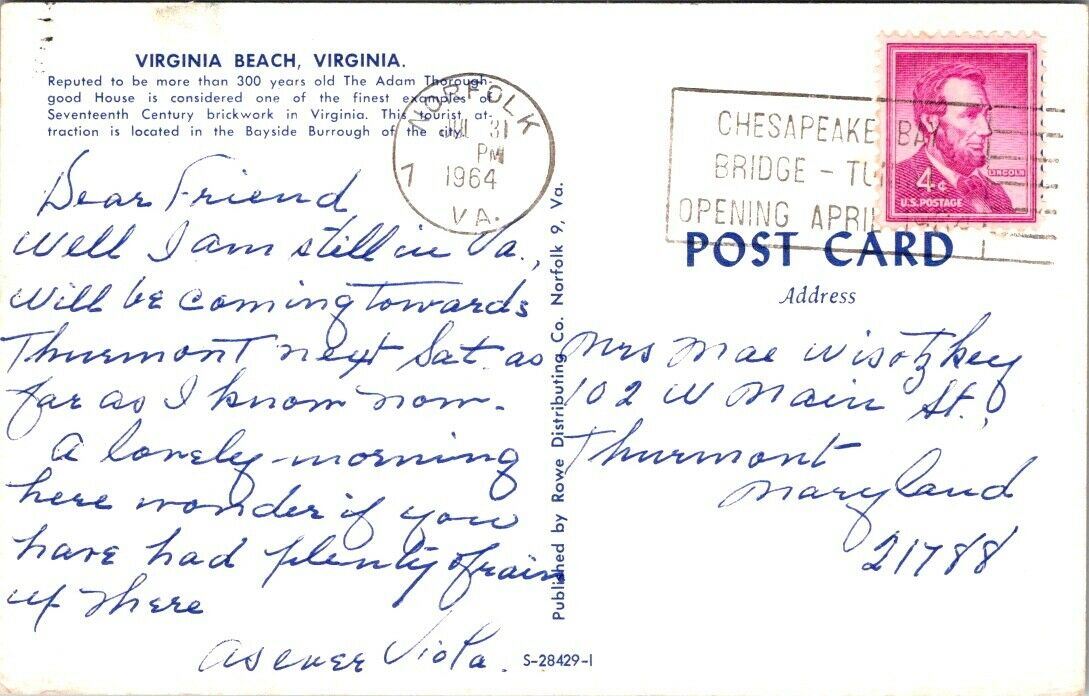 VIRGINIA BEACH, VIRGINIA.
Reputed to be more than 300 years old The Adam Thorough-
good House is considered one of the finest examples of
Seventeenth Century brickwork in Virginia. This tourist at-
traction is located in the Bayside Burrough of the city.
NORFOLK
JUL 31
PM
1964
7
VA.
CHESAPEAKE BAY
BRIDGE - TU
OPENING APRIL
LINCOLN
4¢
U.S. POSTAGE
POST CARD
Address
Dear Friend
Well I am still in Va.,
will be coming towards
Thurmont next Sat. as
far as I know now.
A lovely morning
here wonder if you
have had plenty of rain
up there
As ever Viola.
Published by Rowe Distributing Co. Norfolk 9, Va.
Mrs Mae Wisotzkey
102 W Main St.,
Thurmont
Maryland
21788
S-28429-1